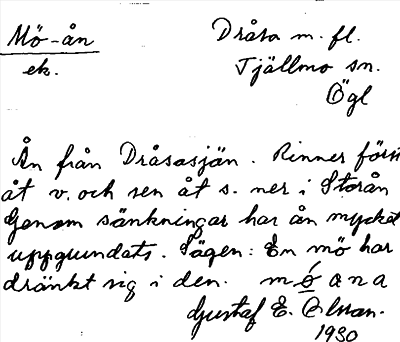 Mö-ån
ek.
Dråsa m. fl.
Tjällmo sn.
Ögl
Ån från Dråsasjön. Rinner först
åt v. och sen åt s. ner i Storån
Genom sänkningar har ån mycket
uppgrundats. Sägen: En mö har
dränkt sig i den. móana
Gustaf E. Olsson.
1930